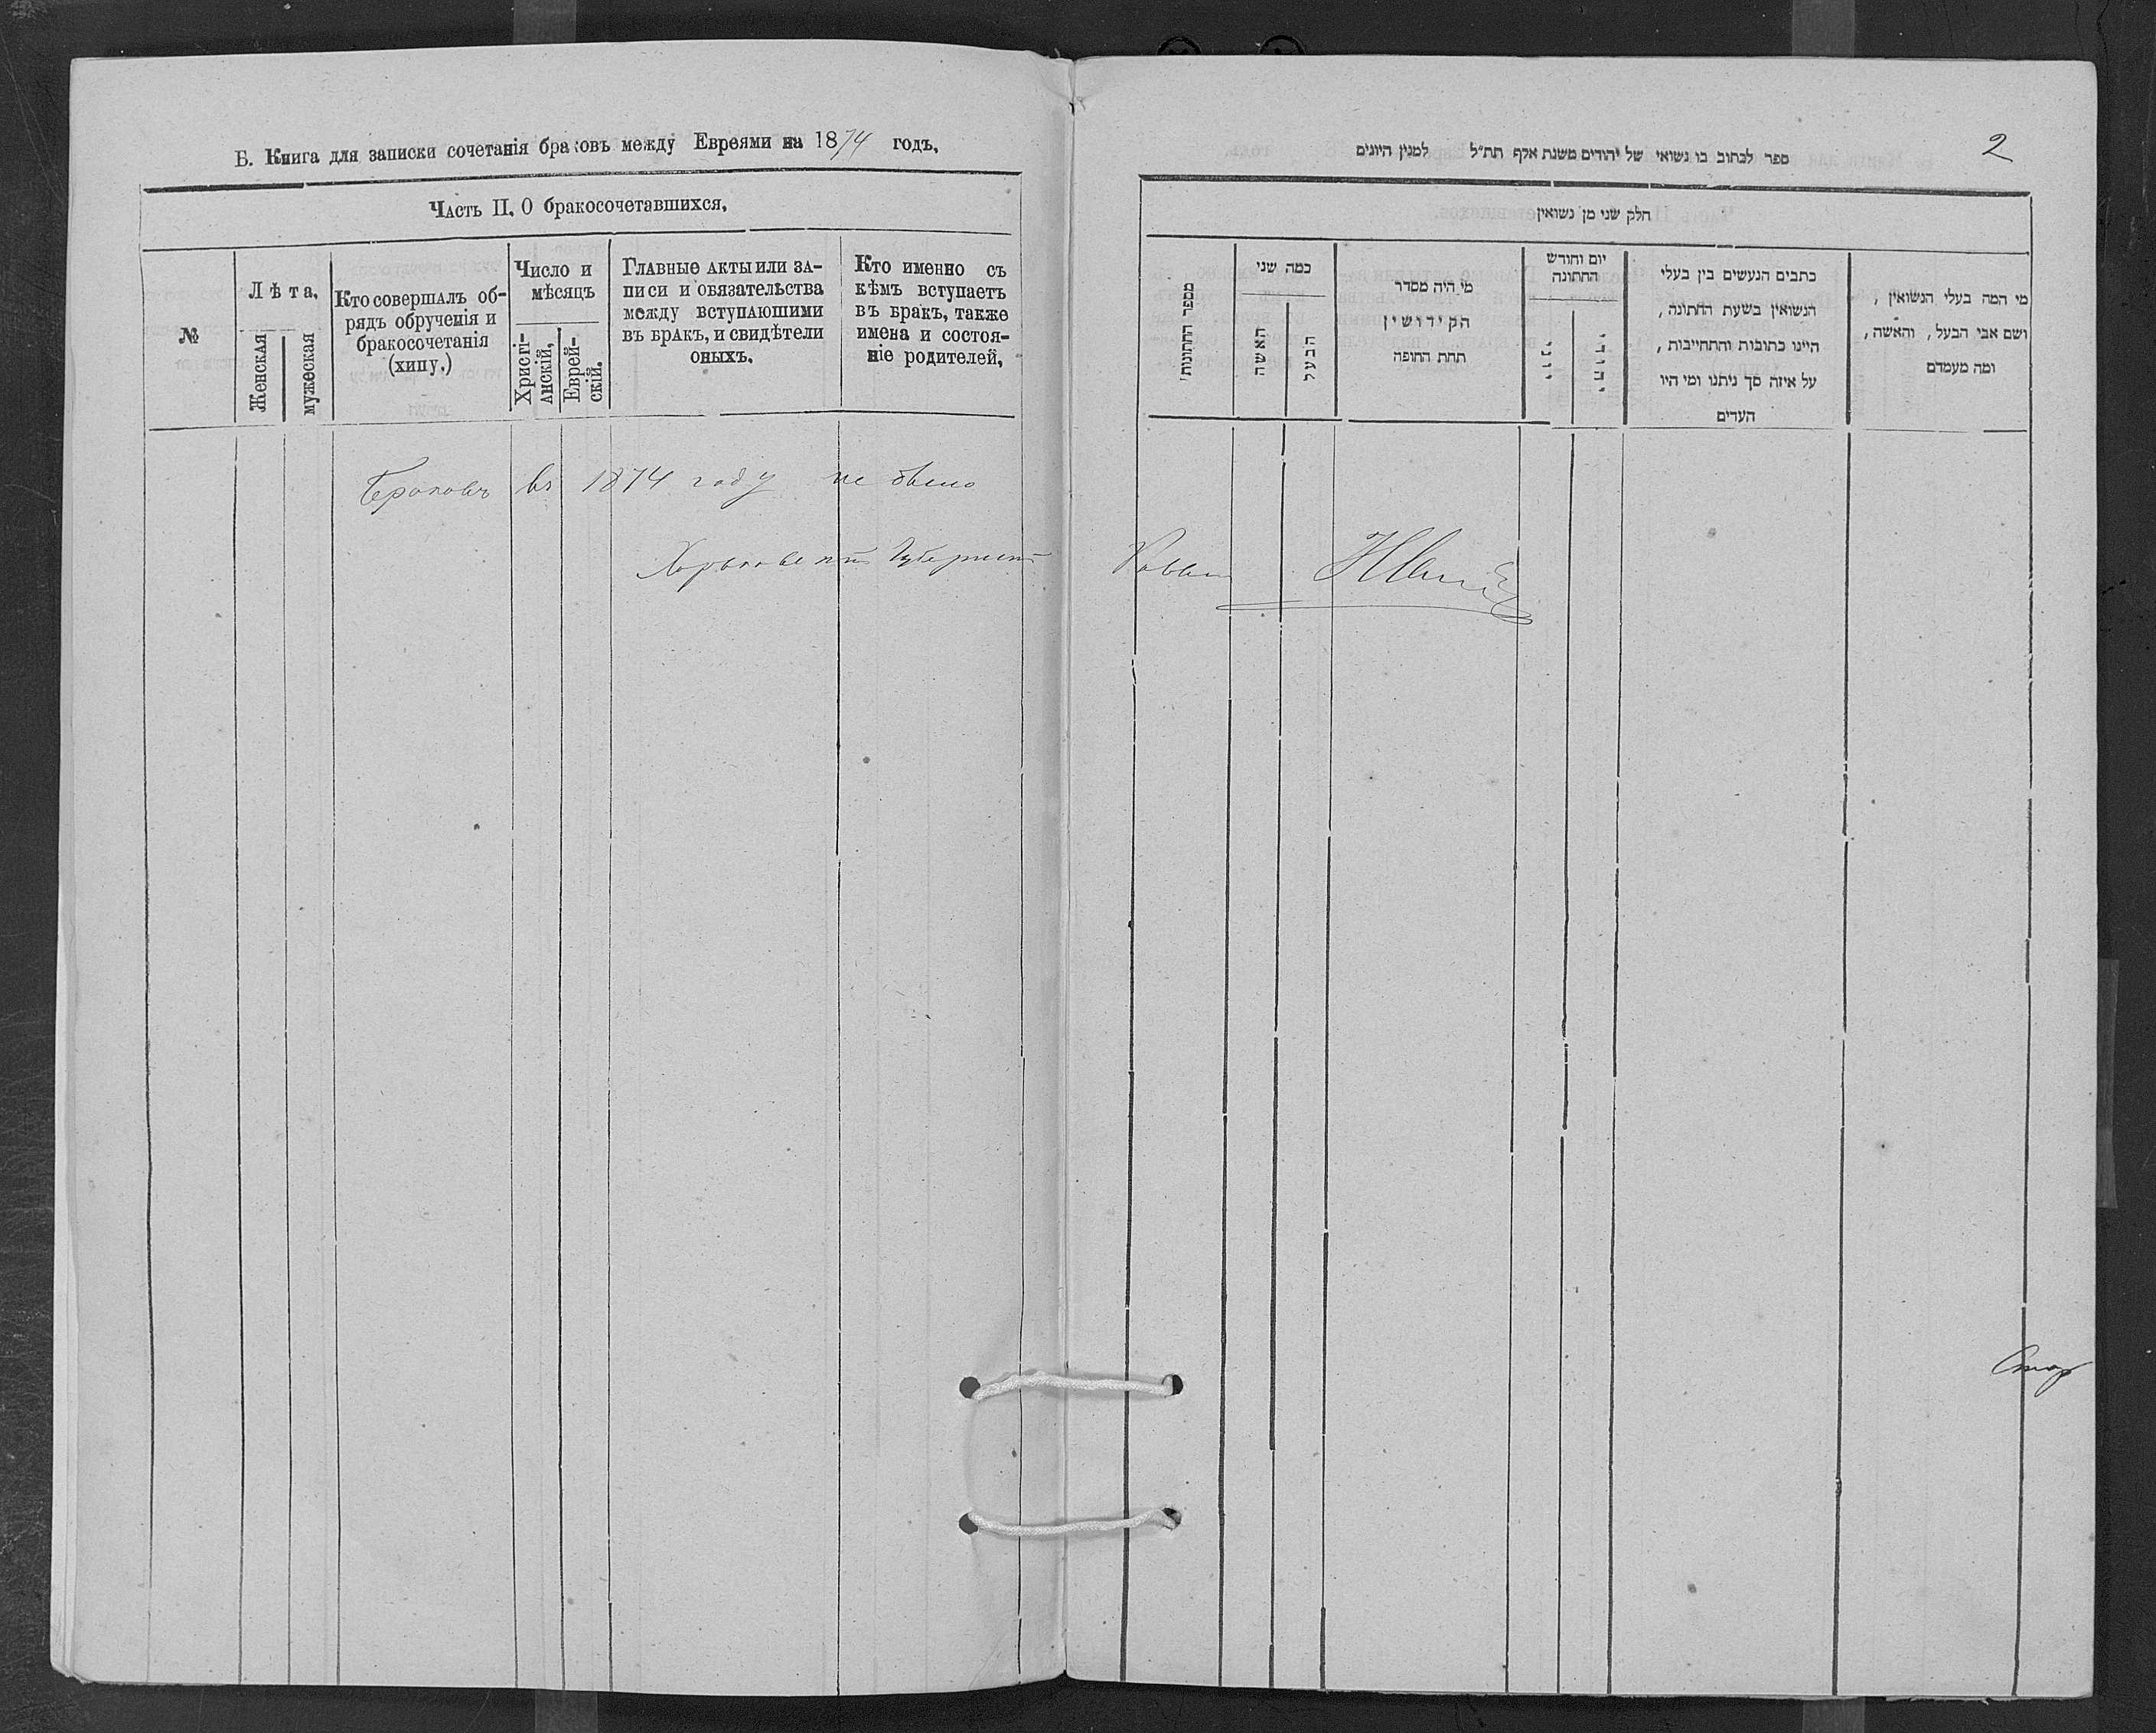 Б. Книга для записки сочетанія браковъ между Евреями на 1874 годъ.
Часть II. О бракосочетавшихся.
№
Лѣта.
Женская
мужеская
Кто совершалъ об-
рядъ обрученія и
бракосочетанія
(хипу.)
Число и
мѣсяцъ
Христі-
анскій,
Еврей-
скій.
Главные акты или за-
писи и обязательства
между вступающими
въ бракъ, и свидѣтели
оныхъ.
Кто именно съ
кѣмъ вступаетъ
въ бракъ, также
имена и состоя-
ніе родителей,
Браковъ въ 1874 году не было
Харьковскій Губернскій
2
ספר לכתוב בו נשואי של יהודים משנת אלף תת״ל למנין היונים
חלק שני מן נשואין
מספר החתונות'
כמה שני
האשה
הבעל
מי היה מסדר
הקידושין
תחת החופה
יום וחודש
החתונה
יוני
יהודי
כתבים הנעשים בין בעלי
הנשואין בשעת החתונה,
היינו כתובות והתחייבות,
על איזה סך ניתנו ומי היו
העדים
מי המה בעלי הנשואין,
ושם אבי הבעל, והאשה,
ומה מעמדם
Раввин